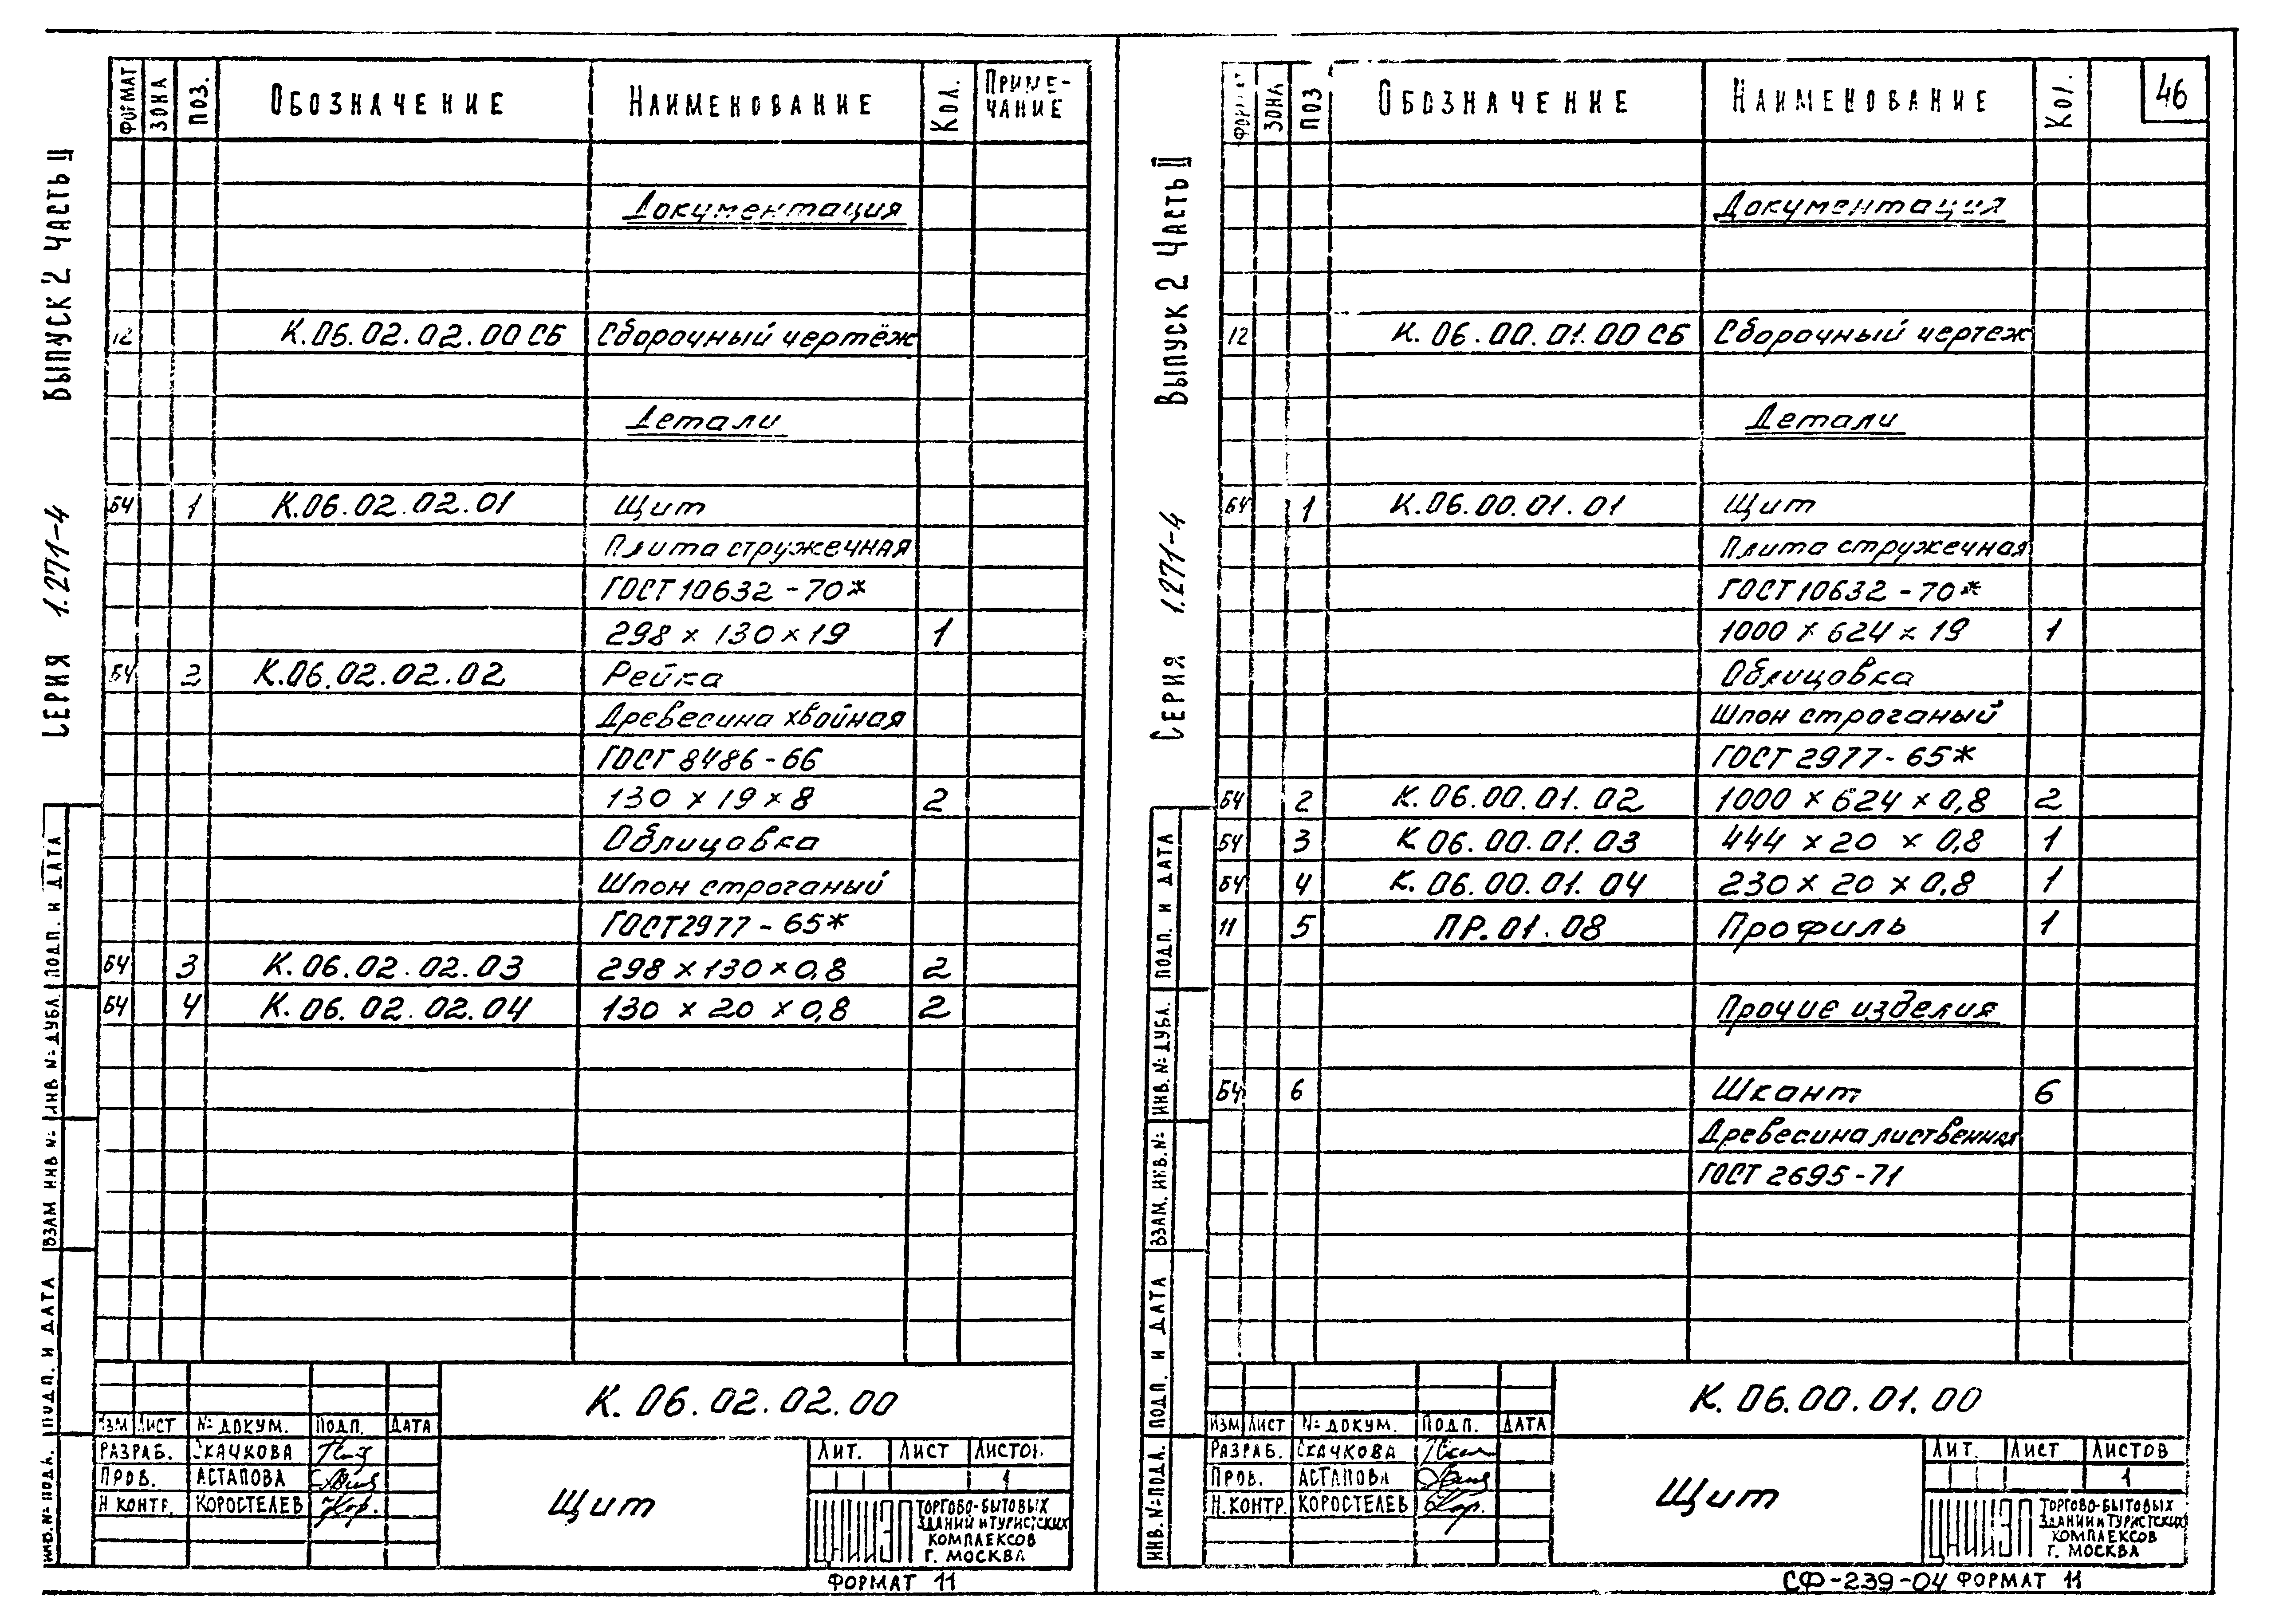 ФОРМАТ ЗОНА ПОЗ. ОБОЗНАЧЕНИЕ НАИМЕНОВАНИЕ КОЛ. ПРИМЕ-ЧАНИЕ
Документация
12 К.06.02.02.00 СБ Сборочный чертёж
Детали
БЧ 1 К.06.02.02.01 Щит
Плита стружечная
ГОСТ 10632-70*
298 × 130 × 19 1
БЧ 2 К.06.02.02.02 Рейка
Древесина хвойная
ГОСТ 8486-66
130 × 19 × 8 2
Облицовка
Шпон строганый
ГОСТ 2977-65*
БЧ 3 К.06.02.02.03 298 × 130 × 0,8 2
БЧ 4 К.06.02.02.04 130 × 20 × 0,8 2
ВЫПУСК 2 ЧАСТЬ II
СЕРИЯ 1.271-4
ПОДП. И ДАТА
ИНВ № ДУБЛ.
ВЗАМ ИНВ №
ПОДП. И ДАТА
ИНВ. № ПОДЛ.
К.06.02.02.00
ИЗМ ЛИСТ № ДОКУМ. ПОДП. ДАТА
РАЗРАБ. СКАЧКОВА
ПРОВ. АСТАПОВА
Н КОНТР. КОРОСТЕЛЕВ
Щит
ЛИТ. ЛИСТ ЛИСТОВ
1
ЦНИИЭП ТОРГОВО-БЫТОВЫХ
ЗДАНИЙ И ТУРИСТСКИХ
КОМПЛЕКСОВ
Г. МОСКВА
ФОРМАТ 11
ФОРМАТ ЗОНА ПОЗ ОБОЗНАЧЕНИЕ НАИМЕНОВАНИЕ КОЛ. 46
Документация
12 К.06.00.01.00 СБ Сборочный чертеж
Детали
БЧ 1 К.06.00.01.01 Щит
Плита стружечная
ГОСТ 10632-70*
1000 × 624 × 19 1
Облицовка
Шпон строганый
ГОСТ 2977-65*
БЧ 2 К.06.00.01.02 1000 × 624 × 0,8 2
БЧ 3 К 06.00.01.03 444 × 20 × 0,8 1
БЧ 4 К.06.00.01.04 230 × 20 × 0,8 1
11 5 ПР.01.08 Профиль 1
Прочие изделия
БЧ 6 Шкант 6
Древесина лиственная
ГОСТ 2695-71
ВЫПУСК 2 ЧАСТЬ II
СЕРИЯ 1.271-4
ПОДП. И ДАТА
ИНВ. № ДУБЛ.
ВЗАМ. ИНВ. №
ПОДП. И ДАТА
ИНВ. № ПОДЛ.
К.06.00.01.00
ИЗМ ЛИСТ № ДОКУМ. ПОДП. ДАТА
РАЗРАБ. СКАЧКОВА
ПРОВ. АСТАПОВА
Н. КОНТР. КОРОСТЕЛЕВ
Щит
ЛИТ. ЛИСТ ЛИСТОВ
1
ЦНИИЭП ТОРГОВО-БЫТОВЫХ
ЗДАНИЙ И ТУРИСТСКИХ
КОМПЛЕКСОВ
Г. МОСКВА
СФ-239-04 ФОРМАТ 11